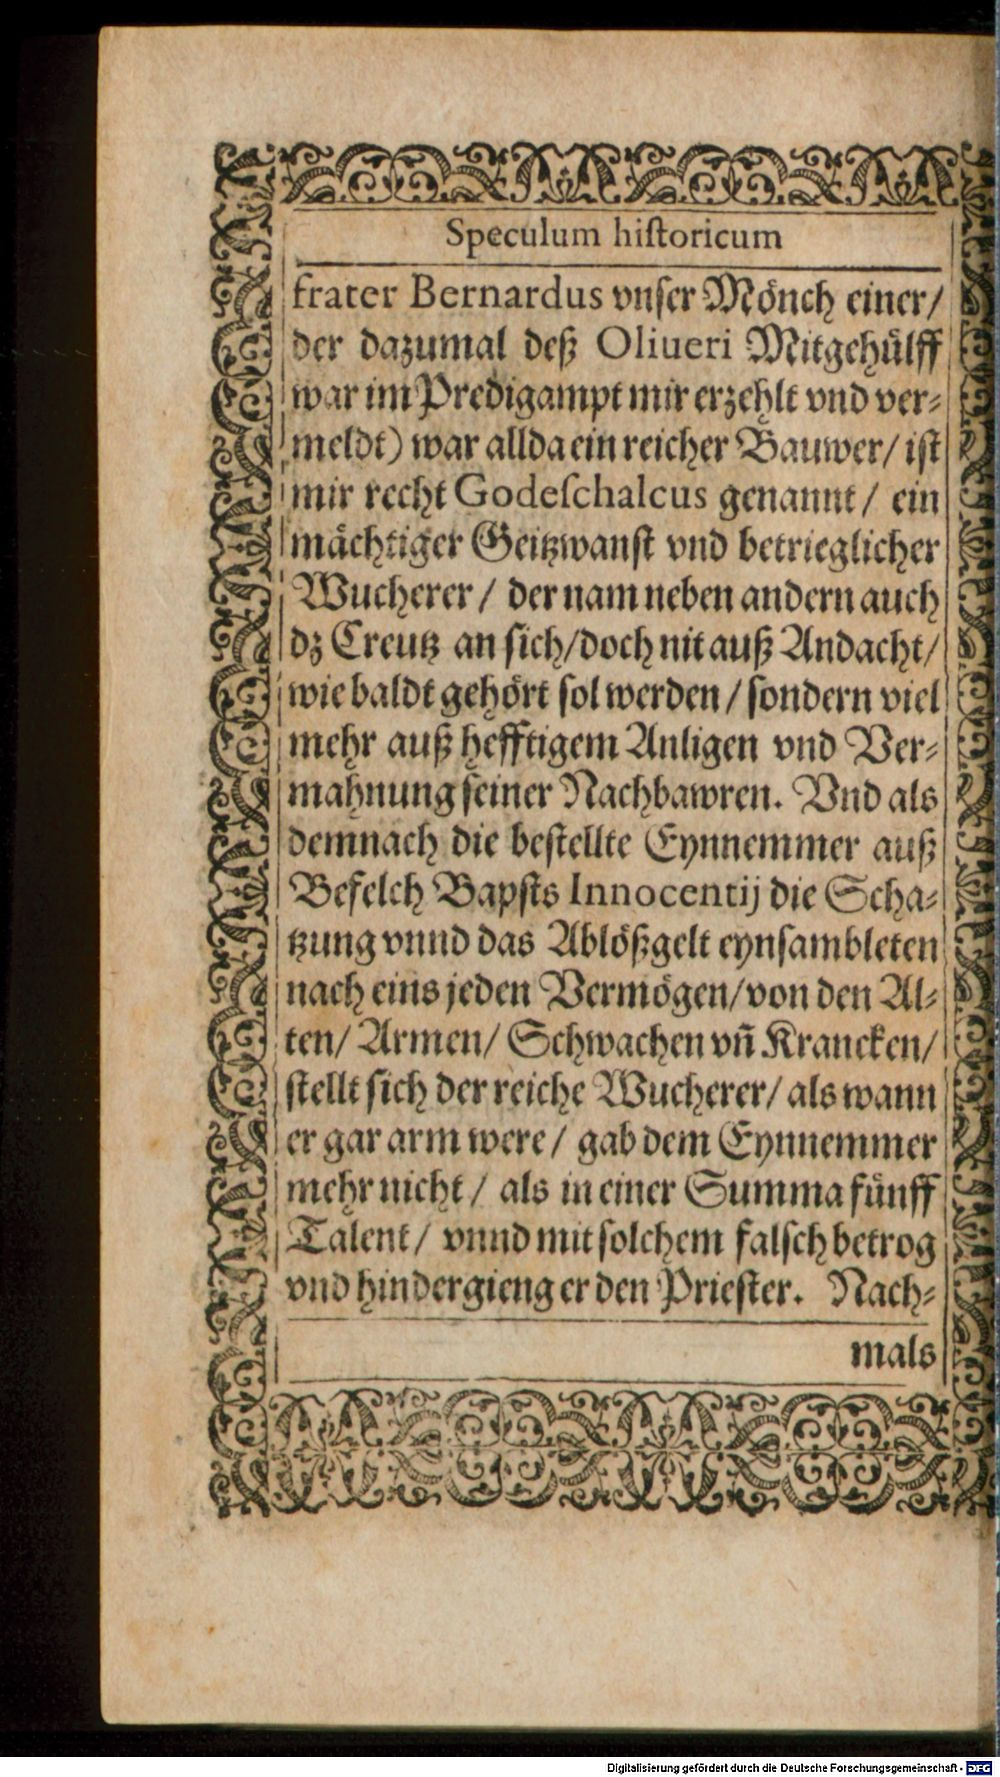 Speculum hiſtoricum
frater Bernardus vnſer Mönch einer/
der dazumal deß Oliueri Mitgehülff
war im Predigampt mir erzehlt vnd ver⸗
meldt) war allda ein reicher Bauwer/ iſt
mir recht Godeſchalcus genannt/ ein
mächtiger Geitzwanſt vnd betrieglicher
Wucherer/ der nam neben andern auch
dz Creutz an ſich/doch nit auß Andacht/
wie baldt gehört ſol werden/ ſondern viel
mehr auß hefftigem Anligen vnd Ver⸗
mahnung ſeiner Nachbawren. Vnd als
demnach die beſtellte Eynnemmer auß
Befelch Bapſts Innocentij die Scha⸗
tzung vnnd das Ablößgelt eynſambleten
nach eins jeden Vermögen/von den Al⸗
ten/ Armen/ Schwachen vñ Krancken/
ſtellt ſich der reiche Wucherer/ als wann
er gar arm were/ gab dem Eynnemmer
mehr nicht/ als in einer Summa fünff
Talent/ vnnd mit ſolchem falſch betrog
vnd hindergieng er den Prieſter. Nach⸗
mals
Digitalisierung gefördert durch die Deutsche Forschungsgemeinschaft - DFG